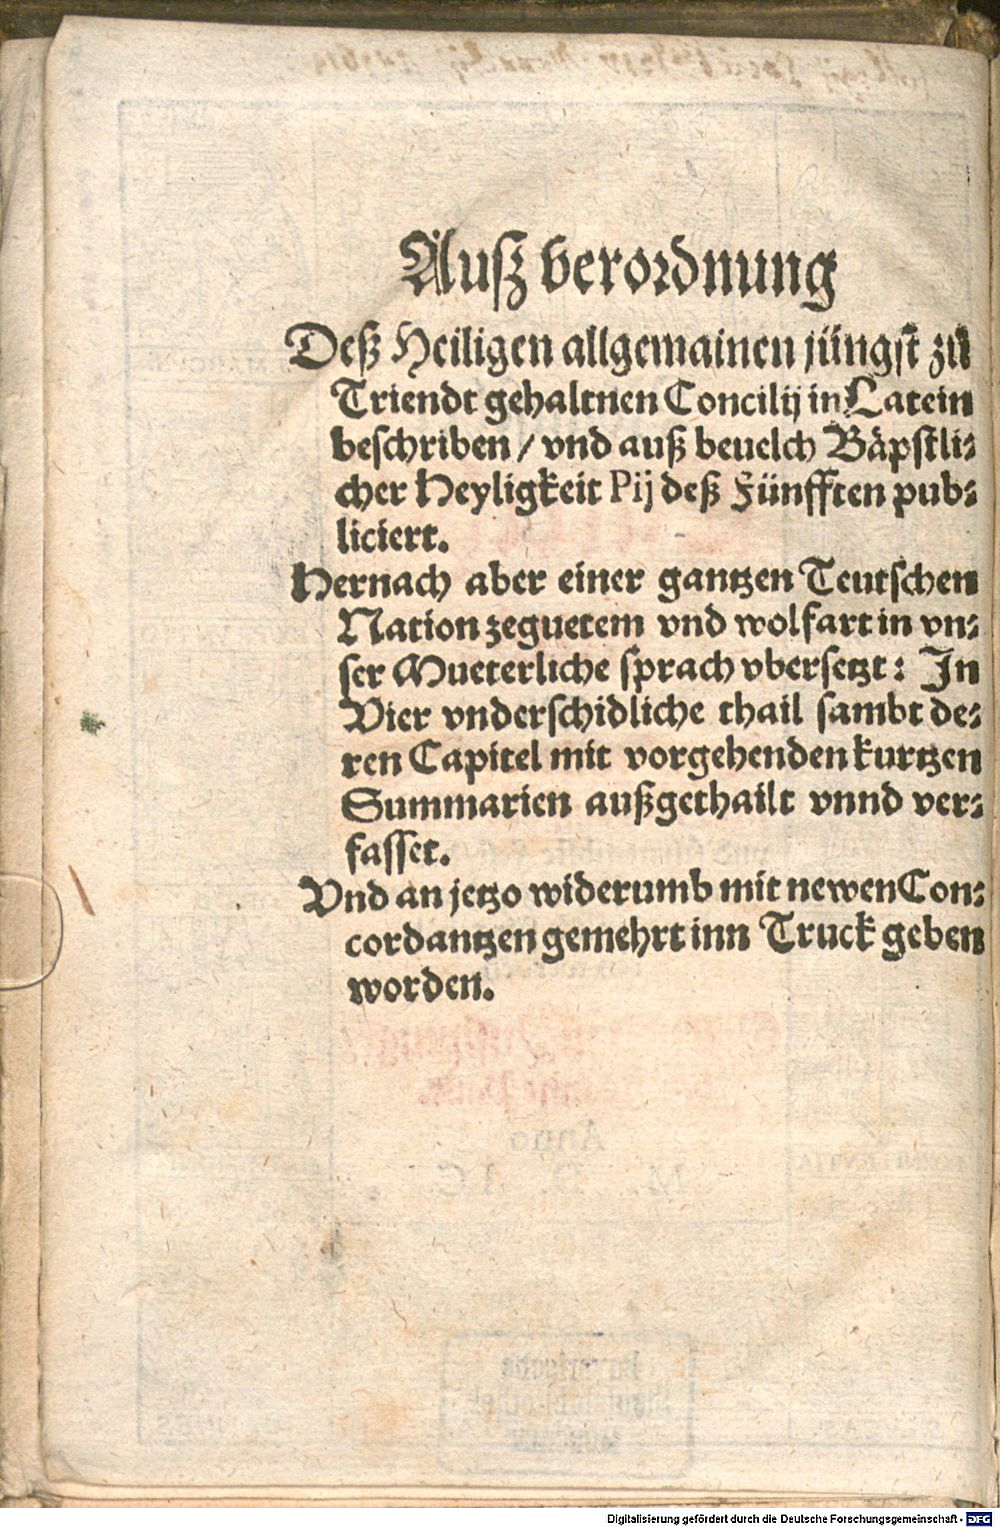 Auß verordnung
Deß Heiligen allgemainen jüngst zů
Triendt gehaltnen Concilij in Latein
beschriben / vnd auß beuelch Bäpstli⸗
cher Heyligkeit Pij deß Fünfften pub⸗
liciert.
Hernach aber einer gantzen Teutschen
Nation zeguetem vnd wolfart in vn⸗
ser Mueterliche sprach vbersetzt: In
Vier vnderschidliche thail sambt de⸗
ren Capitel mit vorgehenden kurtzen
Summarien außgethailt vnnd ver⸗
fasset.
Vnd an jetzo widerumb mit newen Con⸗
cordantzen gemehrt inn Truck geben
worden.
Digitalisierung gefördert durch die Deutsche Forschungsgemeinschaft - DFG